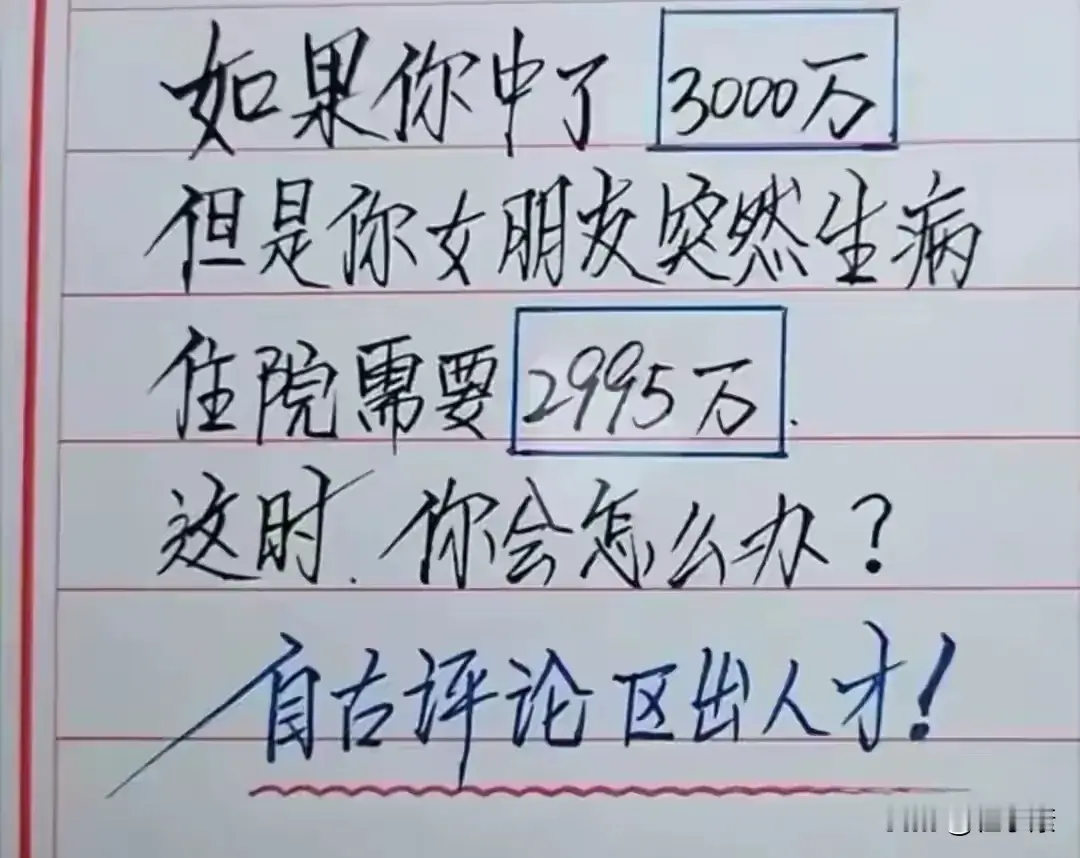 如果你中了 3000万
但是你女朋友突然生病
住院需要 2995万.
这时.你会怎么办?
自古评论区出人才!